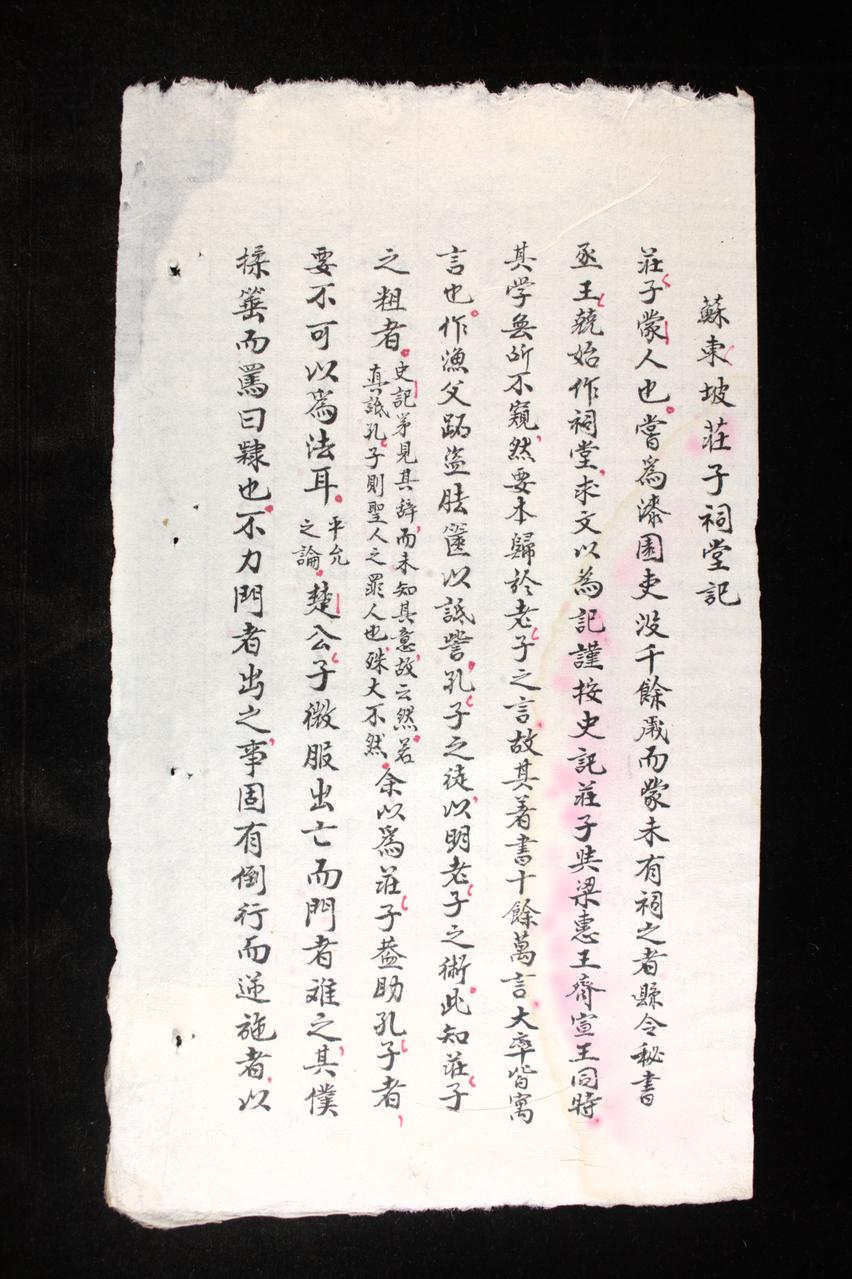 蘇東坡莊子祠堂記
莊子蒙人也。嘗爲漆園吏没千餘歲而蒙未有祠之者縣令秘書
丞王兢始作祠堂、求文以為記謹按史記莊子與梁惠王齊宣王同時、
其学無所不窺、然要本歸於老子之言、故其著書十餘萬言、大率皆寓
言也。作漁父跖盜胠篋以詆訾孔子之徒、以明老子之術、此知莊子
之粗者。史記苐見其辞、而未知其意、故云然。若真詆孔子則聖人之罪人也、殊大不然。余以爲莊子葢助孔子者、
要不可以爲法耳。平允之論。楚公子微服出亡而門者难之、其僕
揉箠而罵曰隸也、不力門者出之、事固有倒行而逆施者、以